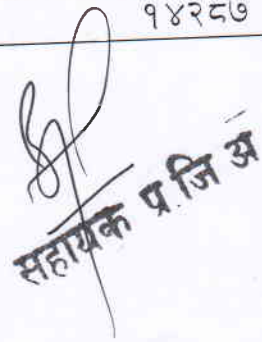 १४२८७
सहायक प्र.जि अ